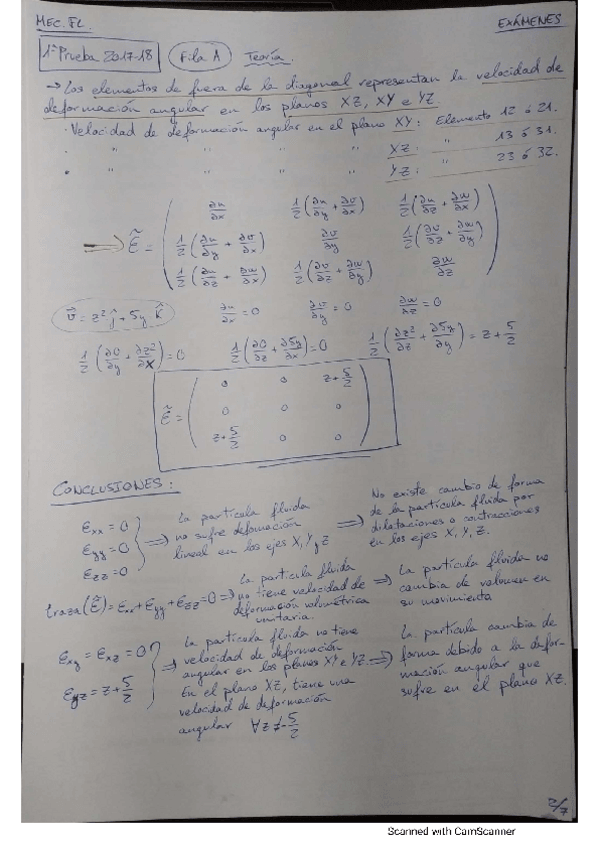 MEC. FL. EXÁMENES
1ª Prueba 2017-18 Fila A Teoría.
→ Los elementos de fuera de la diagonal representan la velocidad de
deformación angular en los planos XZ, XY e YZ
· Velocidad de deformación angular en el plano XY: Elemento 12 ó 21.
· " " " " XZ: " 13 ó 31.
· " " " " YZ: " 23 ó 32.
∂u/∂x 1/2(∂u/∂y + ∂v/∂x) 1/2(∂u/∂z + ∂w/∂x)
⇒ Ẽ = 1/2(∂u/∂y + ∂v/∂x) ∂v/∂y 1/2(∂v/∂z + ∂w/∂y)
1/2(∂u/∂z + ∂w/∂x) 1/2(∂v/∂z + ∂w/∂y) ∂w/∂z
v⃗ = z² ĵ + 5y k̂ ∂u/∂x = 0 ∂v/∂y = 0 ∂w/∂z = 0
1/2(∂0/∂y + ∂z²/∂x) = 0 1/2(∂0/∂z + ∂5y/∂x) = 0 1/2(∂z²/∂z + ∂5y/∂y) = z + 5/2
0 0 z+5/2
Ẽ = 0 0 0
z+5/2 0 0
CONCLUSIONES:
Exx = 0
Eyy = 0
Ezz = 0
⇒ La partícula fluida
no sufre defomación
lineal en los ejes X, Y, Z
⇒ No existe cambio de forma
de la partícula fluida por
dilataciones o contracciones
en los ejes X, Y, Z.
traza(Ẽ) = Exx + Eyy + Ezz = 0 ⇒
La partícula fluida
no tiene velocidad de
deformación volumétrica
unitaria.
⇒ La partícula fluida no
cambia de volumen en
su movimiento
Exy = Exz = 0
Eyz = z + 5/2
⇒ La partícula fluida no tiene
velocidad de deformación
angular en los planos XY e YZ.
En el plano XZ, tiene una
velocidad de deformación
angular ∀z ≠ -5/2
⇒ La partícula cambia de
forma debido a la defor-
mación angular que
sufre en el plano XZ.
2/7
Scanned with CamScanner